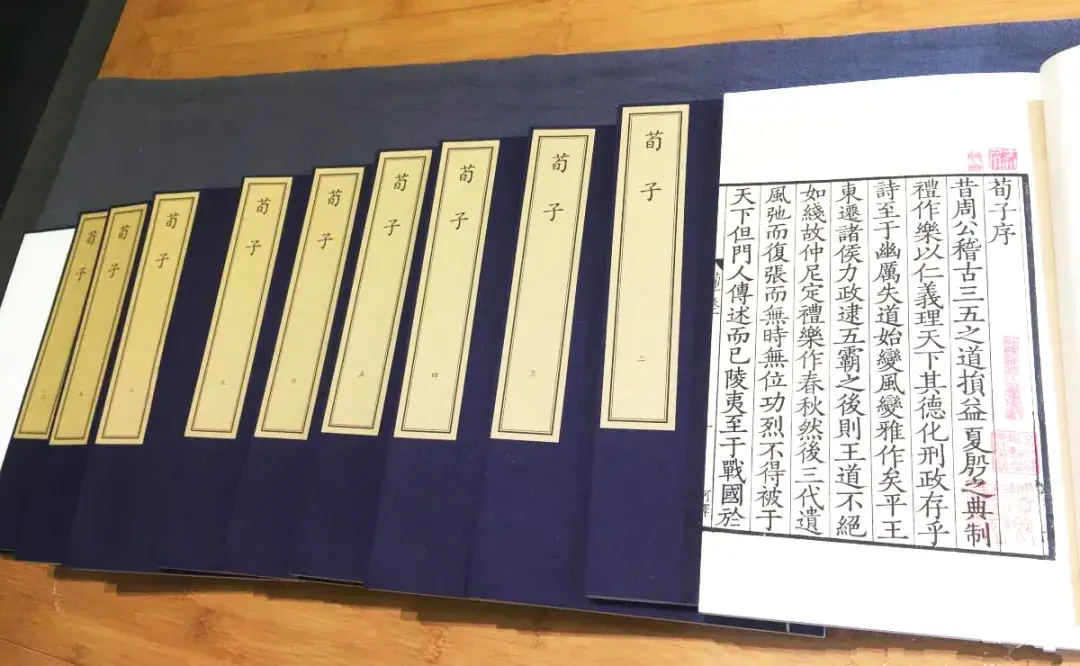 荀子序
昔周公稽古三五之道損益夏殷之典制
禮作樂以仁義理天下其德化刑政存乎
詩至于幽厲失道始變風變雅作矣平王
東遷諸侯力政逮五霸之後則王道不絕
如綫故仲尼定禮樂作春秋然後三代遺
風弛而復張而無時無位功烈不得被于
天下但門人傳述而已陵夷至于戰國於
荀子
二
荀子
三
荀子
四
荀子
五
荀子
荀子
荀子
荀子
荀子